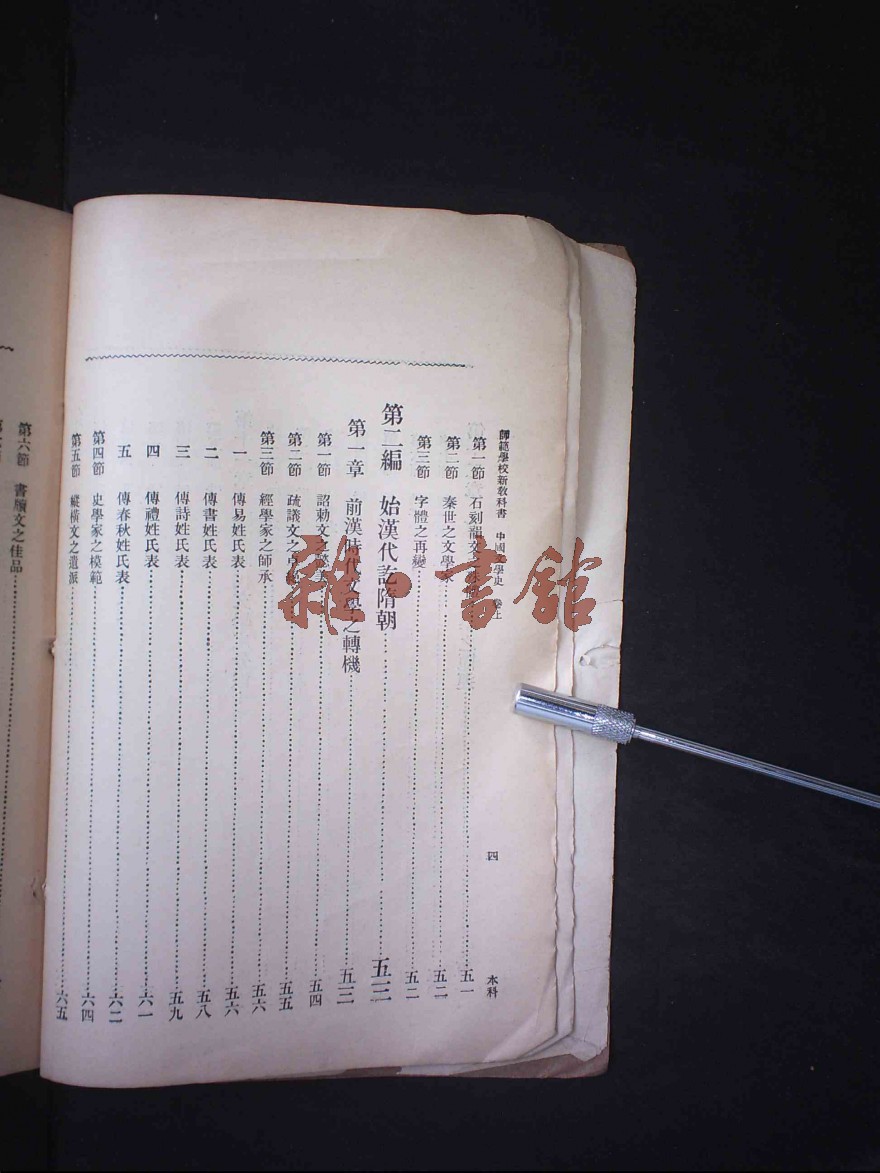 師範學校新教科書 中國文學史 卷上 四 本科
第一節 石刻韻文 五一
第二節 秦世之文學 五二
第三節 字體之再變 五二
第二編 始漢代訖隋朝 五三
第一章 前漢時代文學之轉機 五三
第一節 詔勅文之 五四
第二節 疏議文之 五五
第三節 經學家之師承 五六
一 傳易姓氏表 五六
二 傳書姓氏表 五八
三 傳詩姓氏表 五九
四 傳禮姓氏表 六一
五 傳春秋姓氏表 六二
第四節 史學家之模範 六四
第五節 縱橫文之遺派 六五
第六節 書牘文之佳品
雜·書館